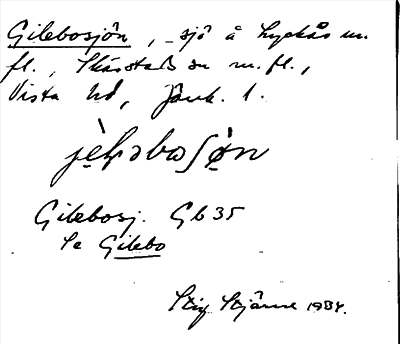 Gilebosjön, sjö å Lyckås m.
fl., Skärstad sn m.fl.,
Vista hd, Jönk. l.
Gilebosj. Gb 35
Se Gilebo
Stig Stjärne 1934.